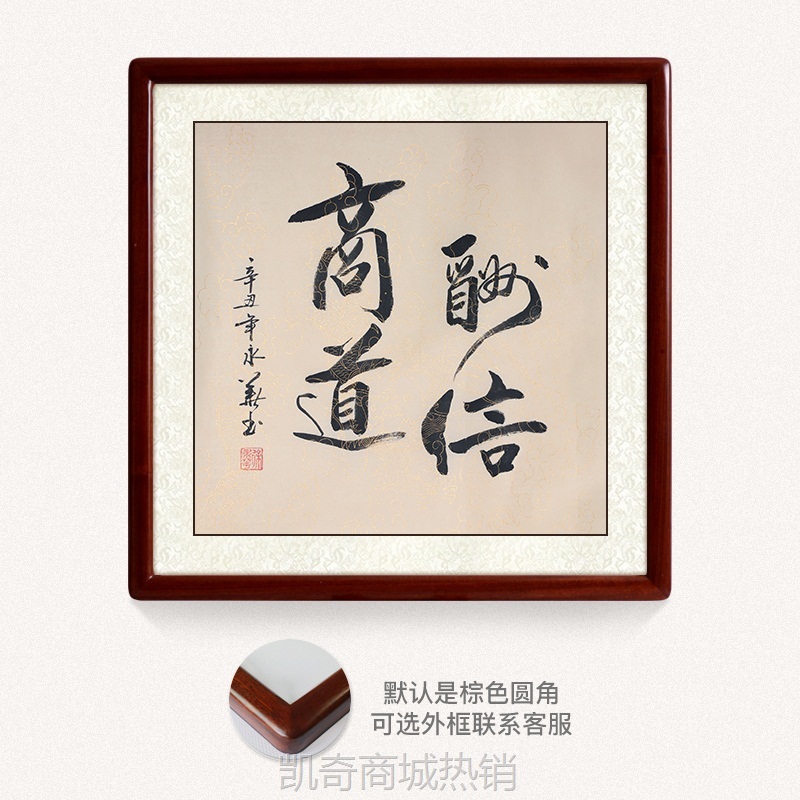 商道
酬信
辛丑年永书
默认是棕色圆角
可选外框联系客服
凯奇商城热销